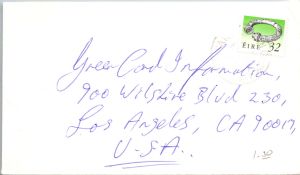 ÉIRE 32
Green Card Information,
900 Wilshire Blvd 230,
Los Angeles, CA 90017,
U-SA.
1-30